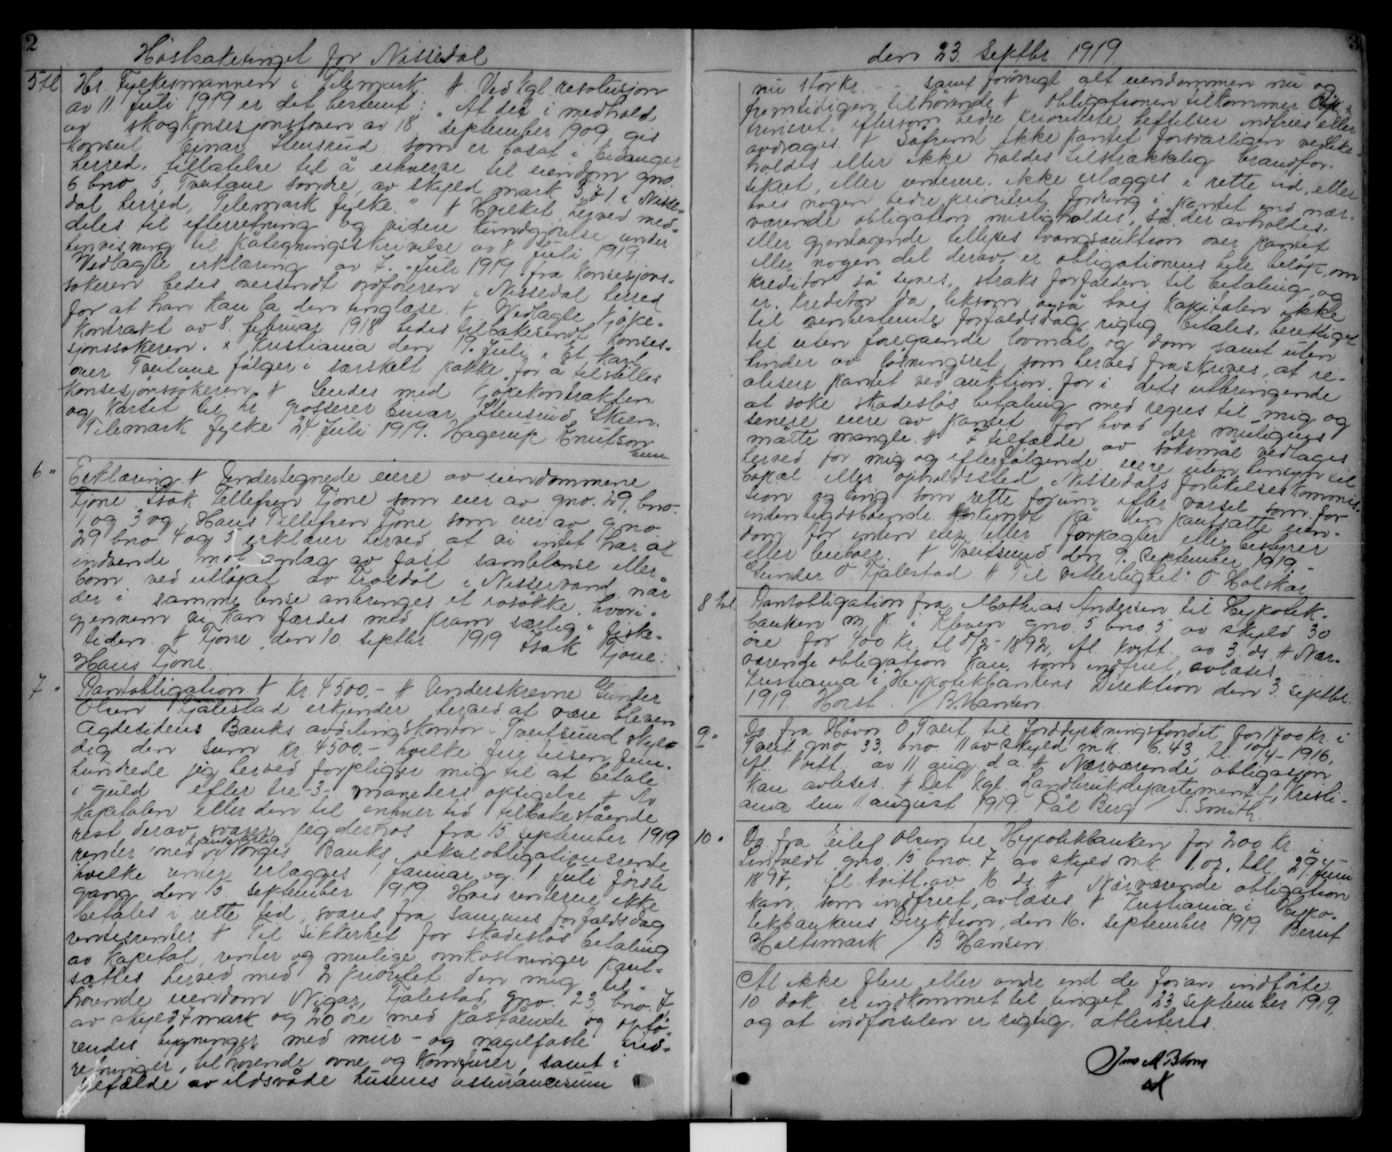 2
Høstsaketinget for Nissedal
5 tl Hr. Fylkesmannen i Telemark. # Ved kgl. resolusjon
av 11 juli 1919 er det bestemt: "At det i medhold
av skogkonsesjonsloven av 18 september 1909 gis
konsul Einar Stensrud som er bosat i Eidanger
herred, tillatelse til å erhverve til eiendom gno.
6 bno 5, Tveitane søndre, av skyld mark 3,71 i Nisse-
dal herred, Telemark fylke." # Hvilket herved med-
deles til efterretning og videre kundgjørelse under
henvisning til påtegningsskrivelse av 8 juli 1919
Vedlagte erklæring av 7. Juli 1919 fra konsesjons-
søkeren bedes oversendt ordføreren i Nissedal herred
for at han kan la den tinglæse. # Vedlagte kjøpe-
kontrakt av 8. februar 1918 bedes tilbakesendt konses-
sjonssøkeren. " Kristiania den 19. juli " Et kart
over Tveitane følger i særskilt pakke for å tilstilles
konsesjonssøkeren. # Sendes med kjøpekontrakten
og kartet til hr. grosserer Einar Stensrud, Skien.
Telemark fylke 24 juli 1919. Hagerup Knutson
6 " Erklæring # Undertegnede eiere av eiendommene
Tjone Isak Tellefsen Tjone som eier av gno. 29, bno.
1 og 3 og Hans Tellefsen Tjone som eier av gno
29 bno 4 og 5 erklærer herved at vi intet har at
indvende mot anlæg av fast samlelense eller
bom ved utløpet av Trældøl i Nisservand når
der i samme lense anbringes et løsøkke, hvori-
gjennem vi kan færdes med pram særlig i fiske-
tiden. # Tjone den 10 septbr 1919 Isak Tjone:
Hans Tjone.
7 " Pantobligation # Kr. 4500,- # Underskrevne Gunder
Olsen Tjalestad erkjender herved at være bleven
Agdesidens Banks avdelingskontor i Tveitsund skyl-
dig den sum kr. 4500.- hvilke fire tusen fem-
hundrede jeg herved forpligter mig til at betale
i guld efter tre -3- måneders opsigelse # Av
kapitalen eller den til enhver tid tilbakestående
rest derav svarer jeg dertos fra 15 september 1919
renter med Norges Banks vekselobligationsrente
hvilke renter erlægges 1 januar og 1 juli første
gang den 15 september 1919 Hvis renterne ikke
betales i rette tid, svares fra sammes forfaldsdag
rentesrenter # Til sikkerhet for skadesløs betaling
av kapital, renter og mulige omkostninger pant-
sættes herved med 2 prioritet den mig til-
hørende eiendom Nigar, Tjalestad, gno. 23, bno. 7
av skyld 7 mark og 20 øre med påstående og opfø-
rendes bygninger med mur- og nagelfaste ind-
retninger, tilhørende ovne og komfurer, samt i
tilfælde av ildsvåde husenes assurancesum
3
den 23 Septbr 1919
nu stor kr. - - - samt forøvrigt alt eiendommen nu og
fremtidigen tilhørende # Obligationen tilkommer Opt-
trinsret, eftersom bedre prioriterte heftelser indfries eller
avdrages. # Såfremt ikke pantet forsvarligen vedlike-
holdes eller ikke holdes tilstrækkelig brandfor-
sikret, eller renterne ikke erlægges i rette tid, eller
hvis nogen bedre prioritert fordring i pantet end nær-
værende obligation misligholdes, så der avholdes
eller gjendagende tillyses tvangsauktion over pantet
eller nogen del derav, er obligationens hele beløp, om
kreditor så synes, straks forfalden til betaling og
er kreditor da, liksom også hvis kapitalen ikke
til ventebestemte forfaldsdag rigtig betales, berettiget
til uten foregående lovmål og dom samt uten
hinder av løsningsret, som herved fraskrives, at re-
alisere pantet ved auktion, for i dets utbringende
at søke skadesløs betaling med regres til mig og
senere eiere av pantet for hvad der muligens
måtte mangle. # I tilfælde av søksmål vedtages
herved for mig og efterfølgende eiere uten hensyn til
bopæl eller opholdssted Nissedals forlikelseskommis-
sion og ting som rette forum efter varsel som for
indenbygdsboende forkyndt på den pantsatte eien-
dom for enten eier eller forpagter eller bestyrer
eller beboer. # Tveitsund den 9. september 1919 -
Gunder O. Tjalestad # Til vitterlighet: O Holskar
8 tl. Pantobligation fra Mathias Andersen til Hypotek-
banken m. p. i Kleven gno. 5 bno. 5 av skyld 30
øre for 400 kr. tl 9/2-1892, ifl. kvitt. av 3, ds. # Nær-
værende obligation kan, som indfriet, avlæses - - -
Kristiania i Hypotekbankens Direktion den 3. septbr.
1919 Horst / B. Hansen.
9 " Do fra Håvor O. Tveit til Jorddyrkningsfondet for 1700 kr. i
Tveit gno. 33, bno 11 av skyld mk. 6,43, tl. 10/4-1916,
ifl. kvitt. av 11 aug. d.a. # Nærværende obligasjon
kan avlæses. # Det Kgl. Landbruksdepartement, Kristi-
ania den 11 august 1919 Pål Berg / S. Smith.
10 " Do fra Eilef Olsen til Hypotekbanken for 200 kr. i
Lindvedt gno. 15 bno. 7 av skyld mk. 1.07, tl. 29 juni
1897, ifl. kvitt. av 16 ds. # Nærværende obligation
kan, som indfriet, avlæses # Kristiania i Hypo-
tekbankens Direktion, den 16. september 1919. Bernt
Holtsmark / B Hansen.
At ikke flere eller andre end de foran indførte
10 dok. er indkommet til tinget 23 september 1919,
og at indførselen er rigtig attesteres.
Jens M Blom